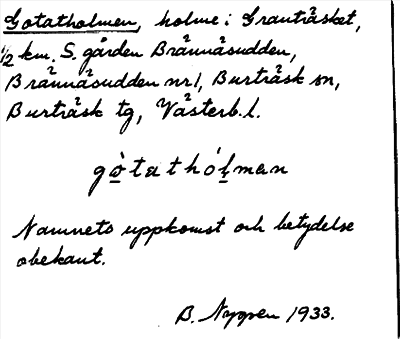 Gotatholmen, holme i Granträsket,
1/2 km. S. gården Brännäsudden,
Brännäsudden nr 1, Burträsk sn,
Burträsk tg, Västerb. l.
gòtathólman
Namnets uppkomst och betydelse
obekant.
B. Nygren 1933.